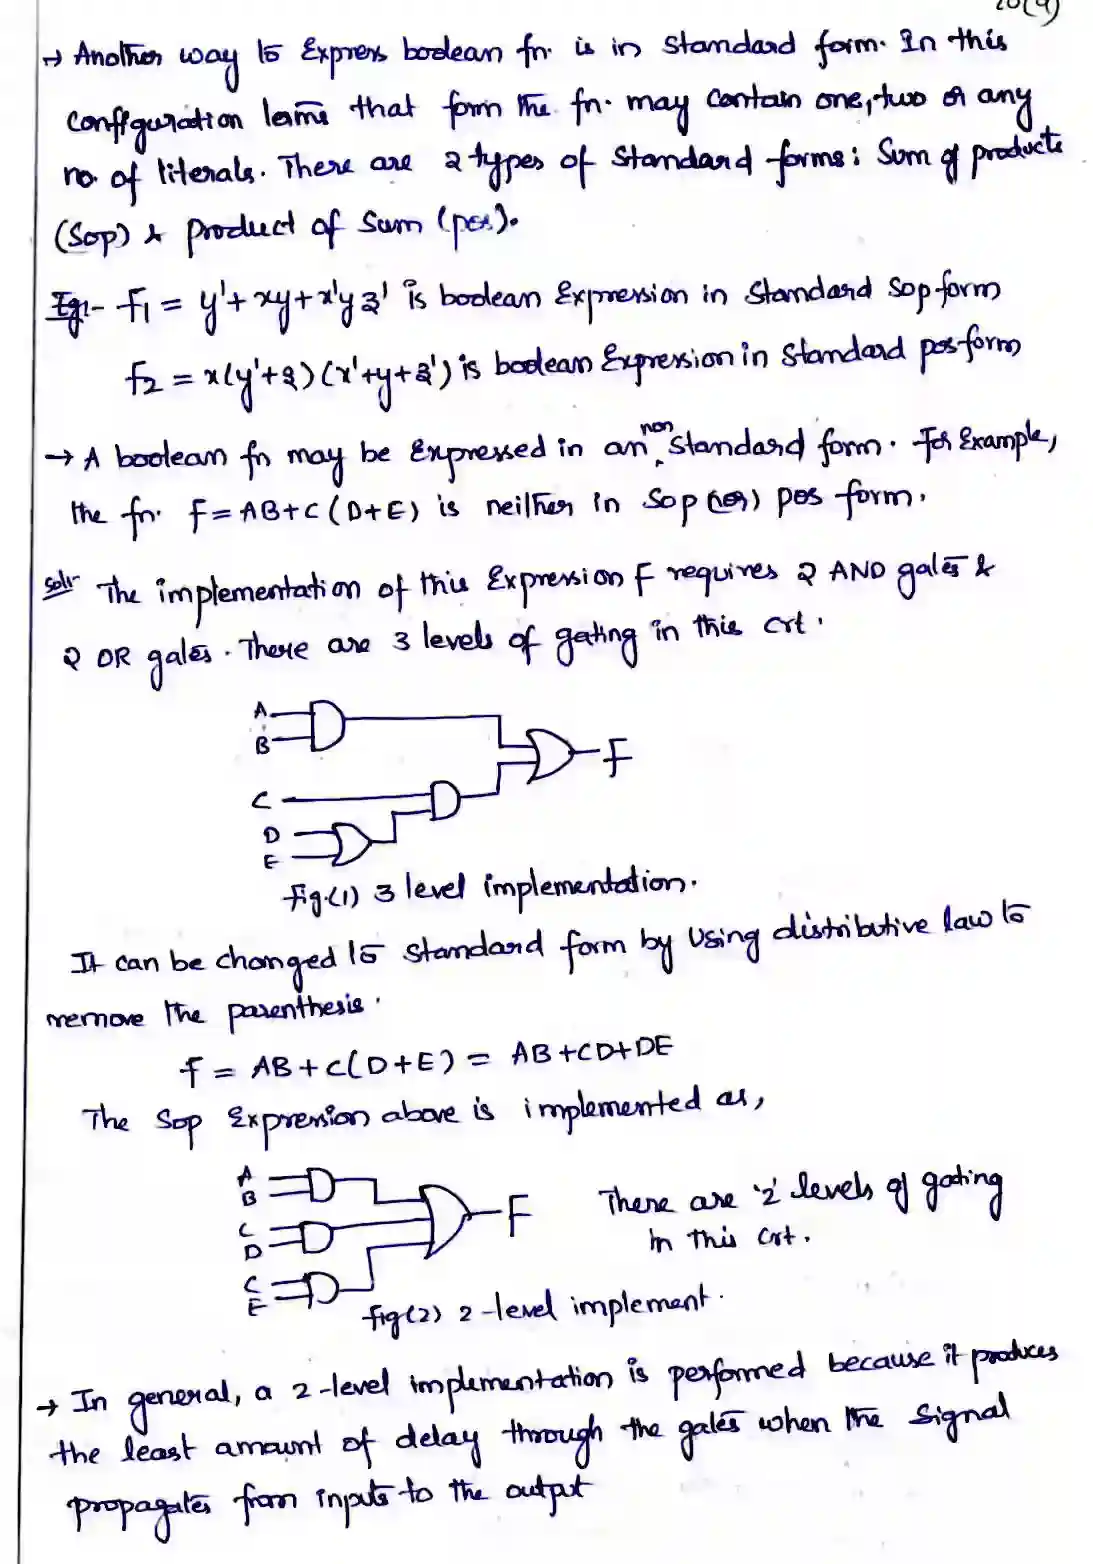 → Another way to Express boolean fn. is in standard form. In this
configuration terms that form the fn. may contain one, two or any
no. of literals. There are 2 types of standard forms: Sum of products
(SOP) & product of sum (pos).
Eg:- F1 = y'+ xy+ x'yz' is boolean Expression in standard Sop form
F2 = x(y'+z)(x'+y+z') is boolean Expression in standard pos form
→ A boolean fn may be Expressed in an non standard form. For Example,
the fn. F=AB+C(D+E) is neither in Sop (or) pos form.
Sol:- The implementation of this Expression F requires 2 AND gates &
2 OR gates. There are 3 levels of gating in this crt.
A
B
F
C
D
E
fig.(1) 3 level implementation.
It can be changed to standard form by using distributive law to
remove the parenthesis.
F = AB + C(D+E) = AB+CD+DE
The Sop Expression above is implemented as,
A
B
C
D
C
E
F
There are '2' levels of gating
in this crt.
fig(2) 2-level implement.
→ In general, a 2-level implementation is performed because it produces
the least amount of delay through the gates when the signal
propagates from inputs to the output